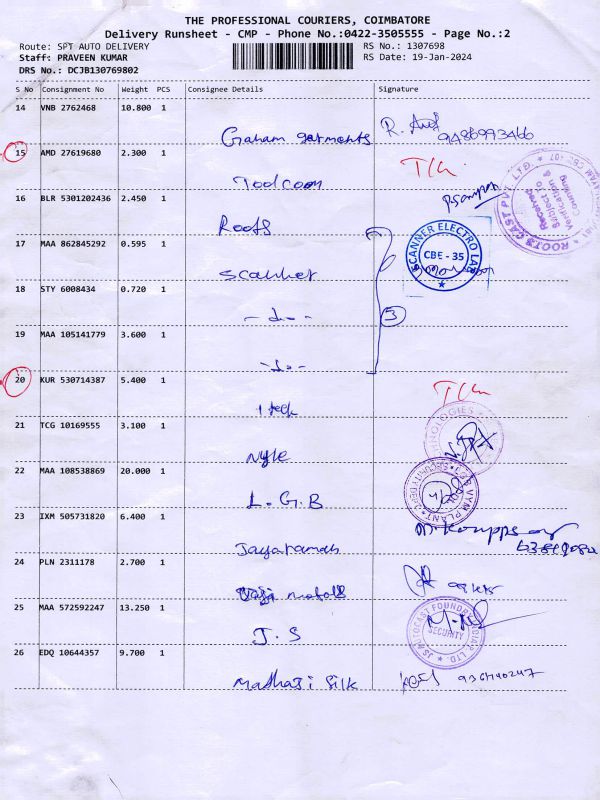 THE PROFESSIONAL COURIERS, COIMBATORE
Delivery Runsheet - CMP - Phone No.:0422-3505555 - Page No.:2
Route: SPT AUTO DELIVERY RS No.: 1307698
Staff: PRAVEEN KUMAR RS Date: 19-Jan-2024
DRS No.: DCJB130769802
S No Consignment No Weight PCS Consignee Details Signature
14 VNB 2762468 10.800 1
Graham garments R. 9486993466
15 AMD 27619680 2.300 1
Toolcom
16 BLR 5301202436 2.450 1
Roots
ROOTS CAST PVT. LTD.
Received
Subject To
Verification &
Counting
17 MAA 862845292 0.595 1
Scanner
SCANNER ELECTRO LAB
CBE - 35
18 STY 6008434 0.720 1
- do -
3
19 MAA 105141779 3.600 1
- do -
20 KUR 530714387 5.400 1
I tech
21 TCG 10169555 3.100 1
Nyle
22 MAA 108538869 20.000 1
L.G.B
23 IXM 505731820 6.400 1
Jayaraman
24 PLN 2311178 2.700 1
metals
25 MAA 572592247 13.250 1
J.S
JS AUTOCAST FOUNDRY
SECURITY
26 EDQ 10644357 9.700 1
Madhaji Silk